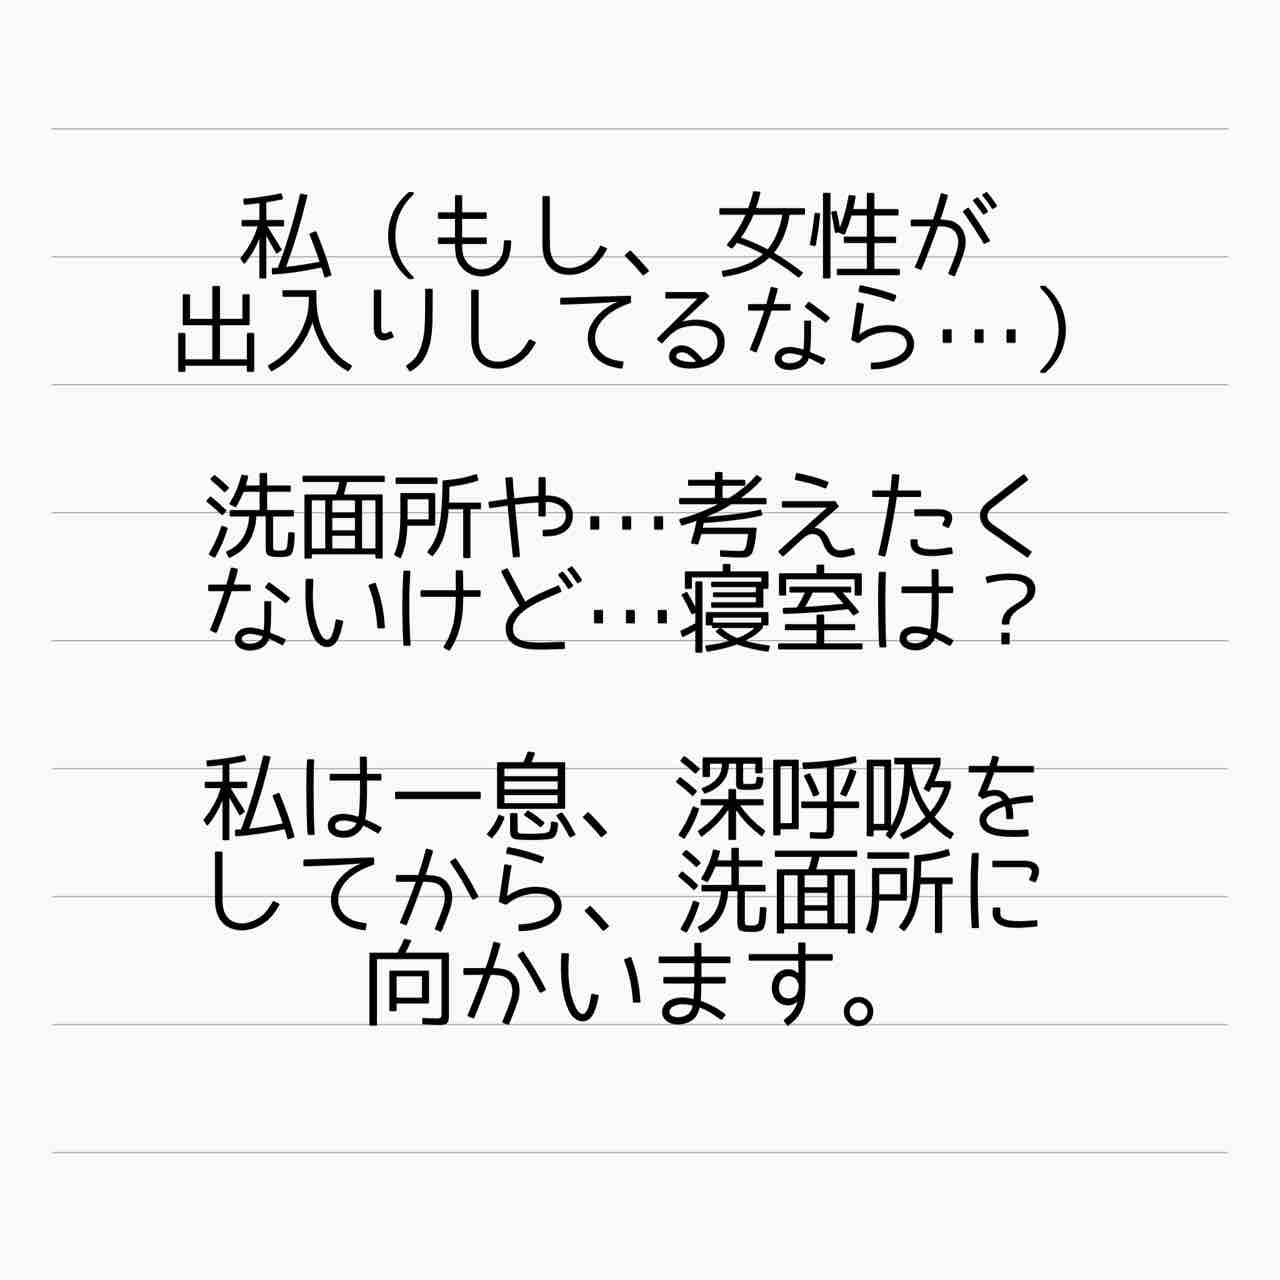 私（もし、女性が
出入りしてるなら…）
洗面所や…考えたく
ないけど…寝室は？
私は一息、深呼吸を
してから、洗面所に
向かいます。